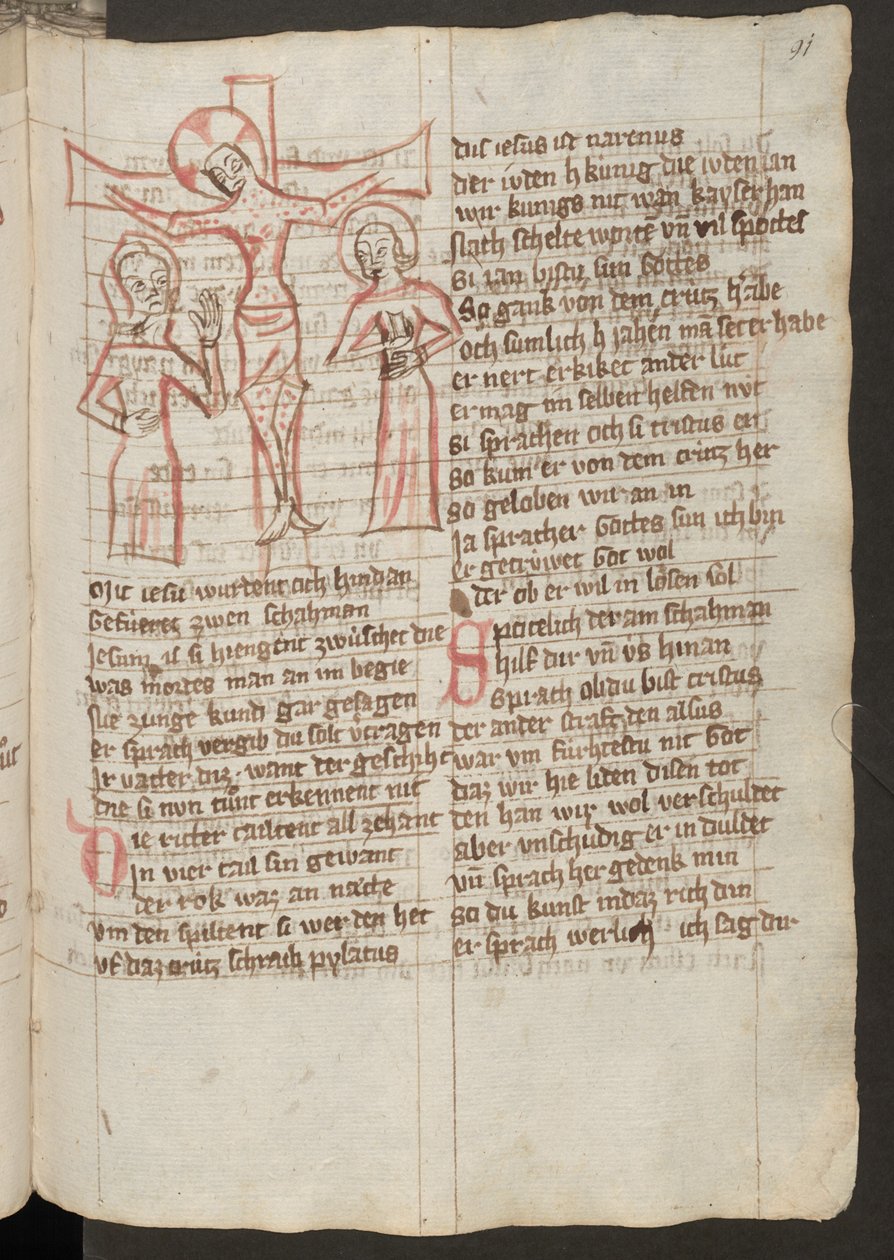 91
Mit iesu wurdent och hindan
Gefüeret zwen schahman
Iesum si hiengent zwüschet die
was mordes man an im begie
Nie zunge kund gar gesagen
er sprach vergib du solt v̄tragen
Ir vatter diz want der geschiht
die si nvn tůnt erkennent nit
Die ritter tailtent all zehant
In vier tail sin gewant
der rok waz an næte
vm den spiltent si wer den het
vf daz crütz schraib pylatus
dis iesus ist narenus
der ivden h künig die ivden ian
wir kunigs nit wan kayser han
Nach schelte wortē vn̄ vil spottes
Si ian bistu sun Gottes
So gank von dem crütz habe
och sumlich h iahen mā set er habe
er nert erkiket ander lüt
er mag im selben helfen nvt
Si sprachen och si cristus er
So kum er von dem crütz her
So geloben wir an in
Ia sprach er Gottes sun ich bin
er getrüwet Got wol
der ob er wil in lösen sol
Spotelich der am schahman
hilf dir vn̄ vns hinan
Sprach ob du bist cristus
der ander straft den alsus
war vm fürhtestu nit Got
daz wir hie liden disen tot
den han wir wol verschuldet
aber vnschudig er in duldet
vn̄ sprach her gedenk min
So du kunst in daz rich din
er sprach werlich ich sag dir